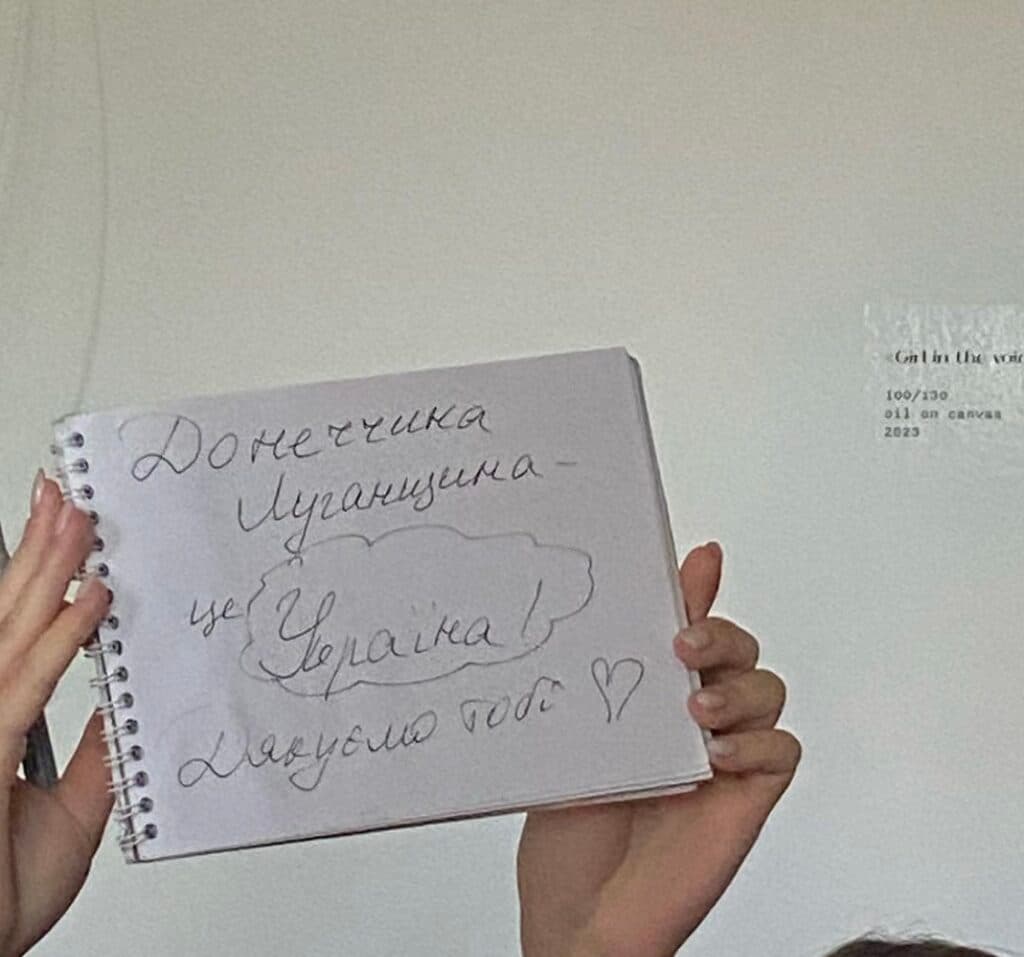 Донеччина
Луганщина –
це Україна!
Дякуємо тобі ♡
«Girl in the
100/130
oil on canvas
2023